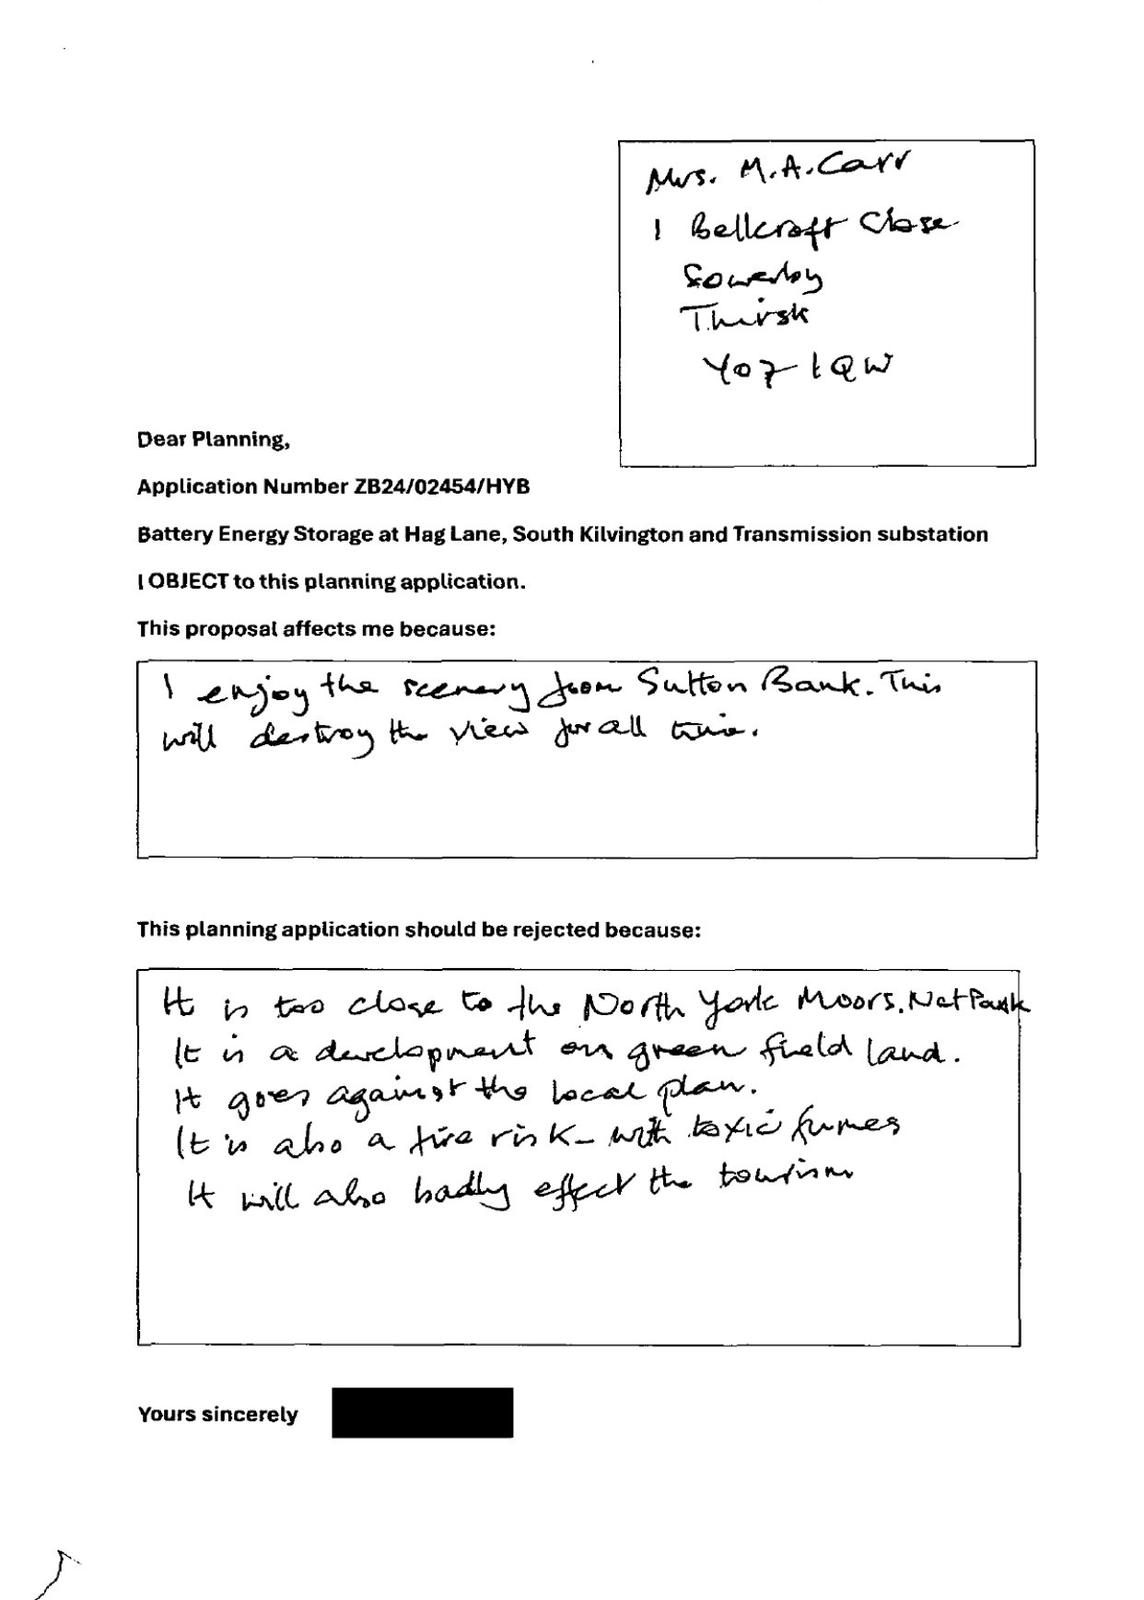 Mrs. M.A. Carr
1 Bellcroft Close
Sowerby
Thirsk
YO7 1QW
Dear Planning,
Application Number ZB24/02454/HYB
Battery Energy Storage at Hag Lane, South Kilvington and Transmission substation
I OBJECT to this planning application.
This proposal affects me because:
I enjoy the scenery from Sutton Bank. This
will destroy the view for all time.
This planning application should be rejected because:
It is too close to the North York Moors. Nat Park
It is a development on green field land.
It goes against the local plan.
It is also a fire risk - with toxic fumes
It will also badly effect the tourism
Yours sincerely